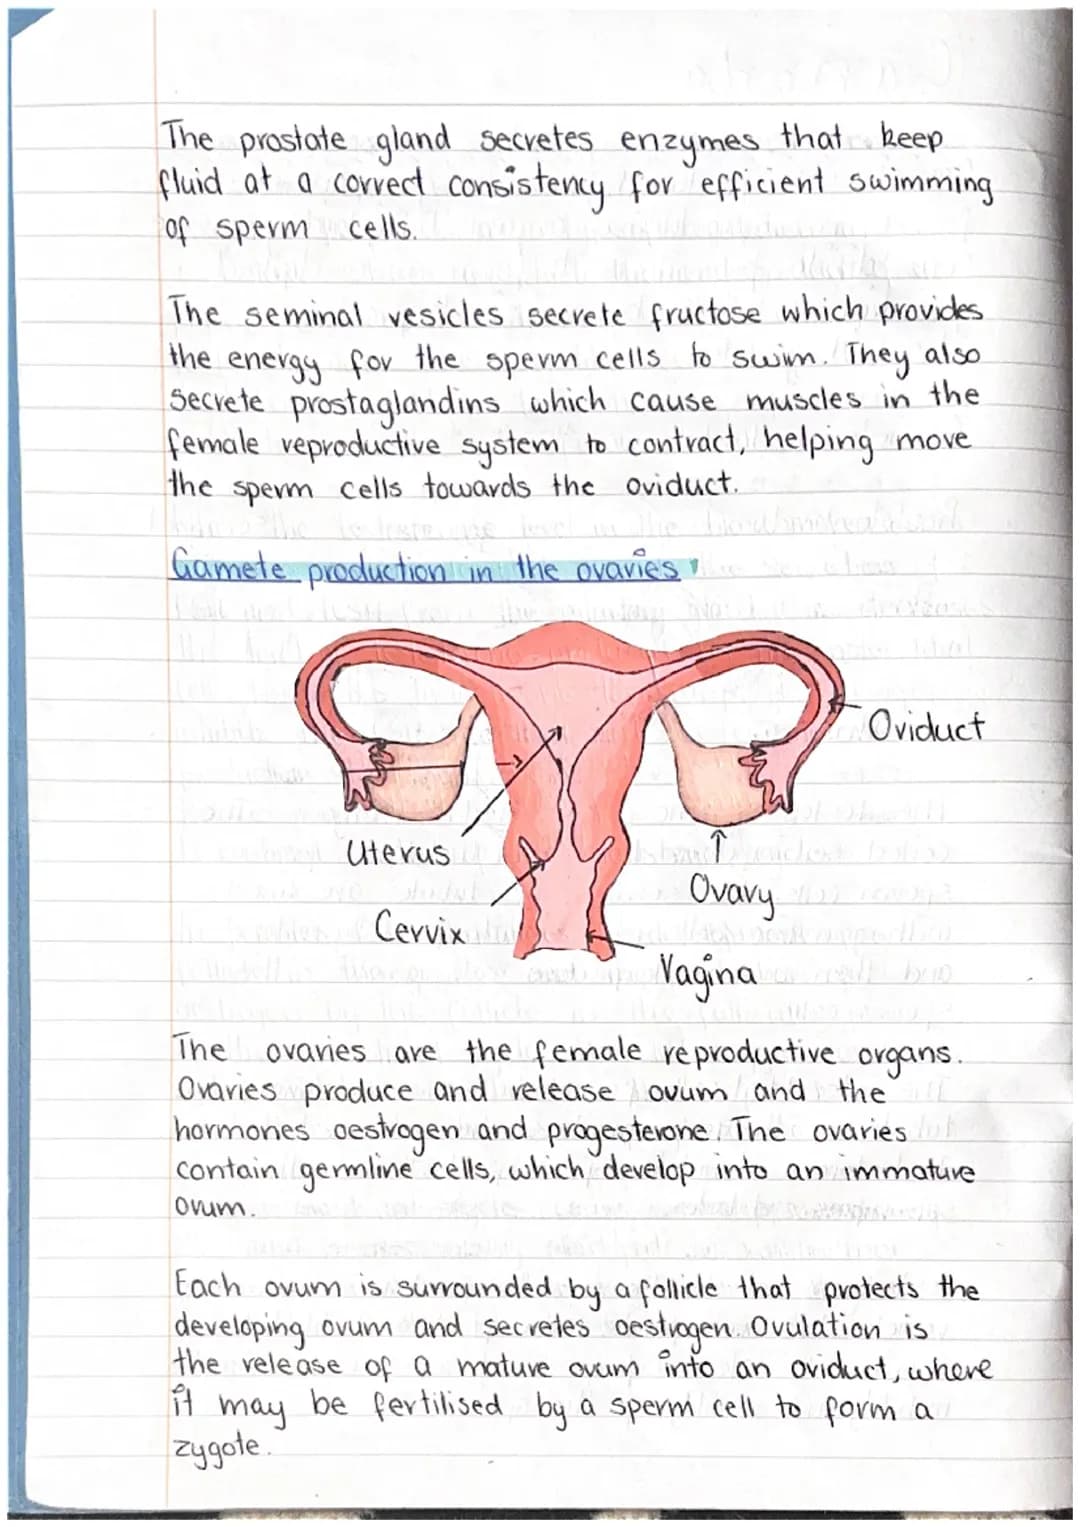 The prostate gland secretes enzymes that keep
fluid at a correct consistency for efficient swimming
of sperm cells.
The seminal vesicles secrete fructose which provides
the energy for the sperm cells to swim. They also
Secrete prostaglandins which cause muscles in the
female reproductive system to contract, helping move
the sperm cells towards the oviduct.
Gamete production in the ovaries
Oviduct
Uterus
Ovary
Cervix
Vagina
The ovaries are the female reproductive organs.
Ovaries produce and release ovum and the
hormones oestrogen and progesterone. The ovaries
contain germline cells, which develop into an immature
ovum.
Each ovum is surrounded by a follicle that protects the
developing ovum and secretes oestrogen. Ovulation is
the release of a mature ovum into an oviduct, where
it may be fertilised by a sperm cell to form a
zygote.